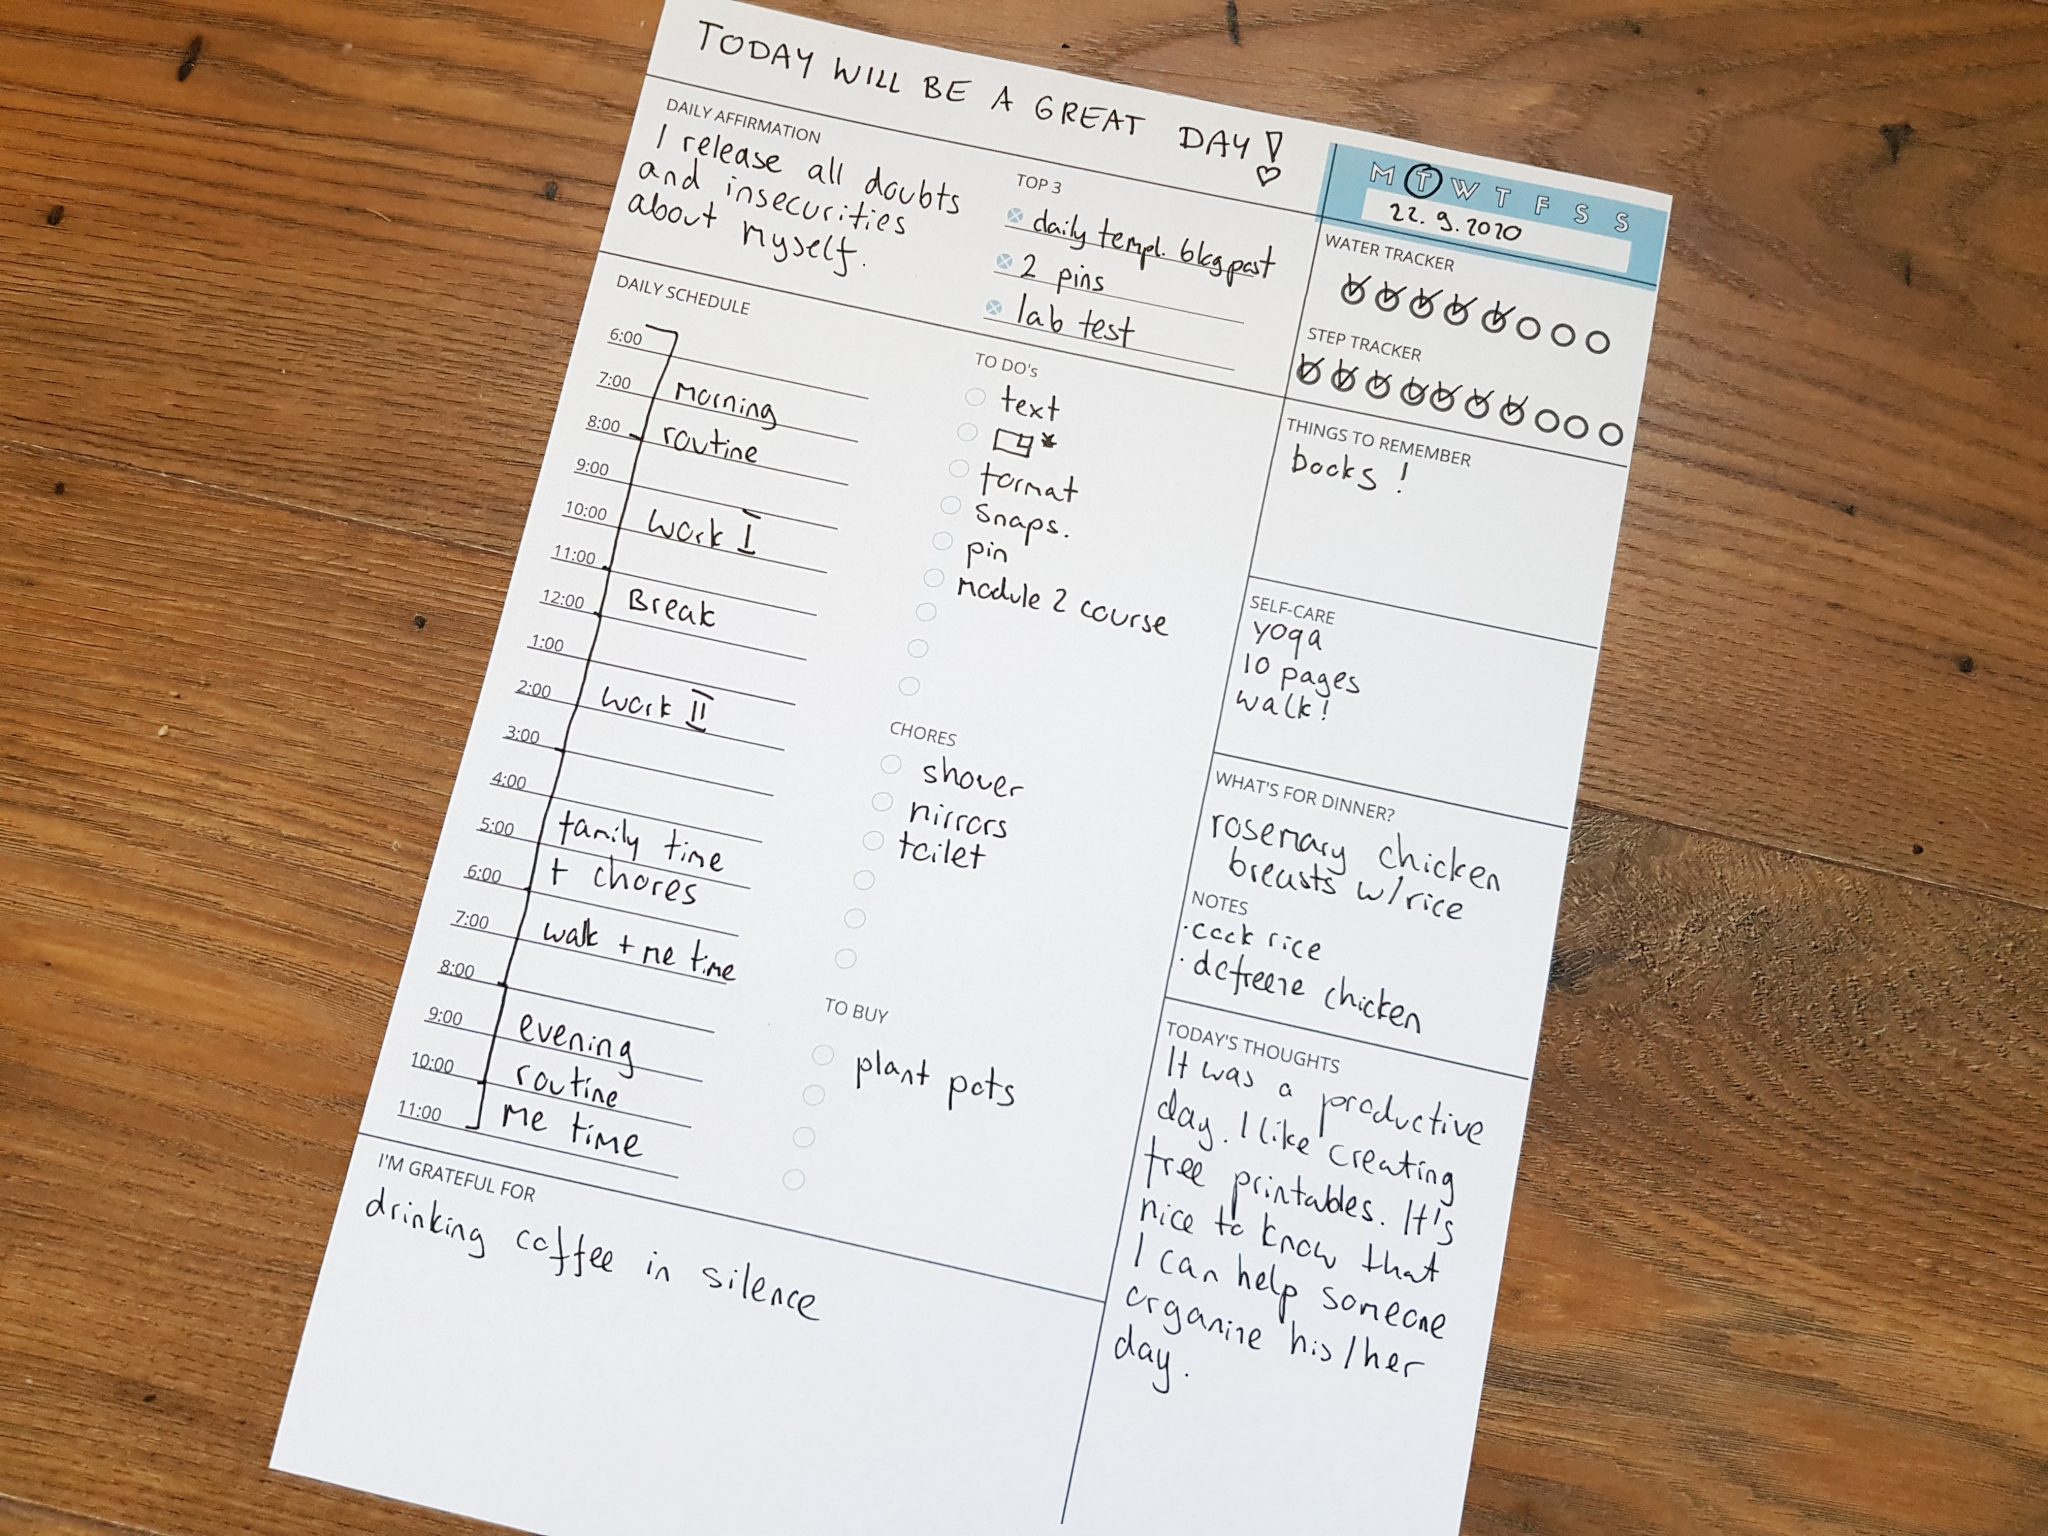 TODAY WILL BE A GREAT DAY!
DAILY AFFIRMATION
I release all doubts
and insecurities
about myself.
TOP 3
daily templ. blogpost
2 pins
lab test
M T W T F S S
22.9.2020
WATER TRACKER
STEP TRACKER
DAILY SCHEDULE
6:00
7:00 Morning
8:00 routine
9:00
10:00 Work I
11:00
12:00 Break
1:00
2:00 Work II
3:00
4:00
5:00 family time
6:00 + chores
7:00 walk + me time
8:00
9:00 evening
10:00 routine
11:00 me time
TO DO's
text
format
snaps.
pin
module 2 course
CHORES
shower
mirrors
toilet
TO BUY
plant pots
THINGS TO REMEMBER
books !
SELF-CARE
yoga
10 pages
walk!
WHAT'S FOR DINNER?
rosemary chicken
breasts w/rice
NOTES
·cook rice
·defreeze chicken
TODAY'S THOUGHTS
It was a productive
day. I like creating
free printables. It's
nice to know that
I can help someone
organize his/her
day.
I'M GRATEFUL FOR
drinking coffee in silence